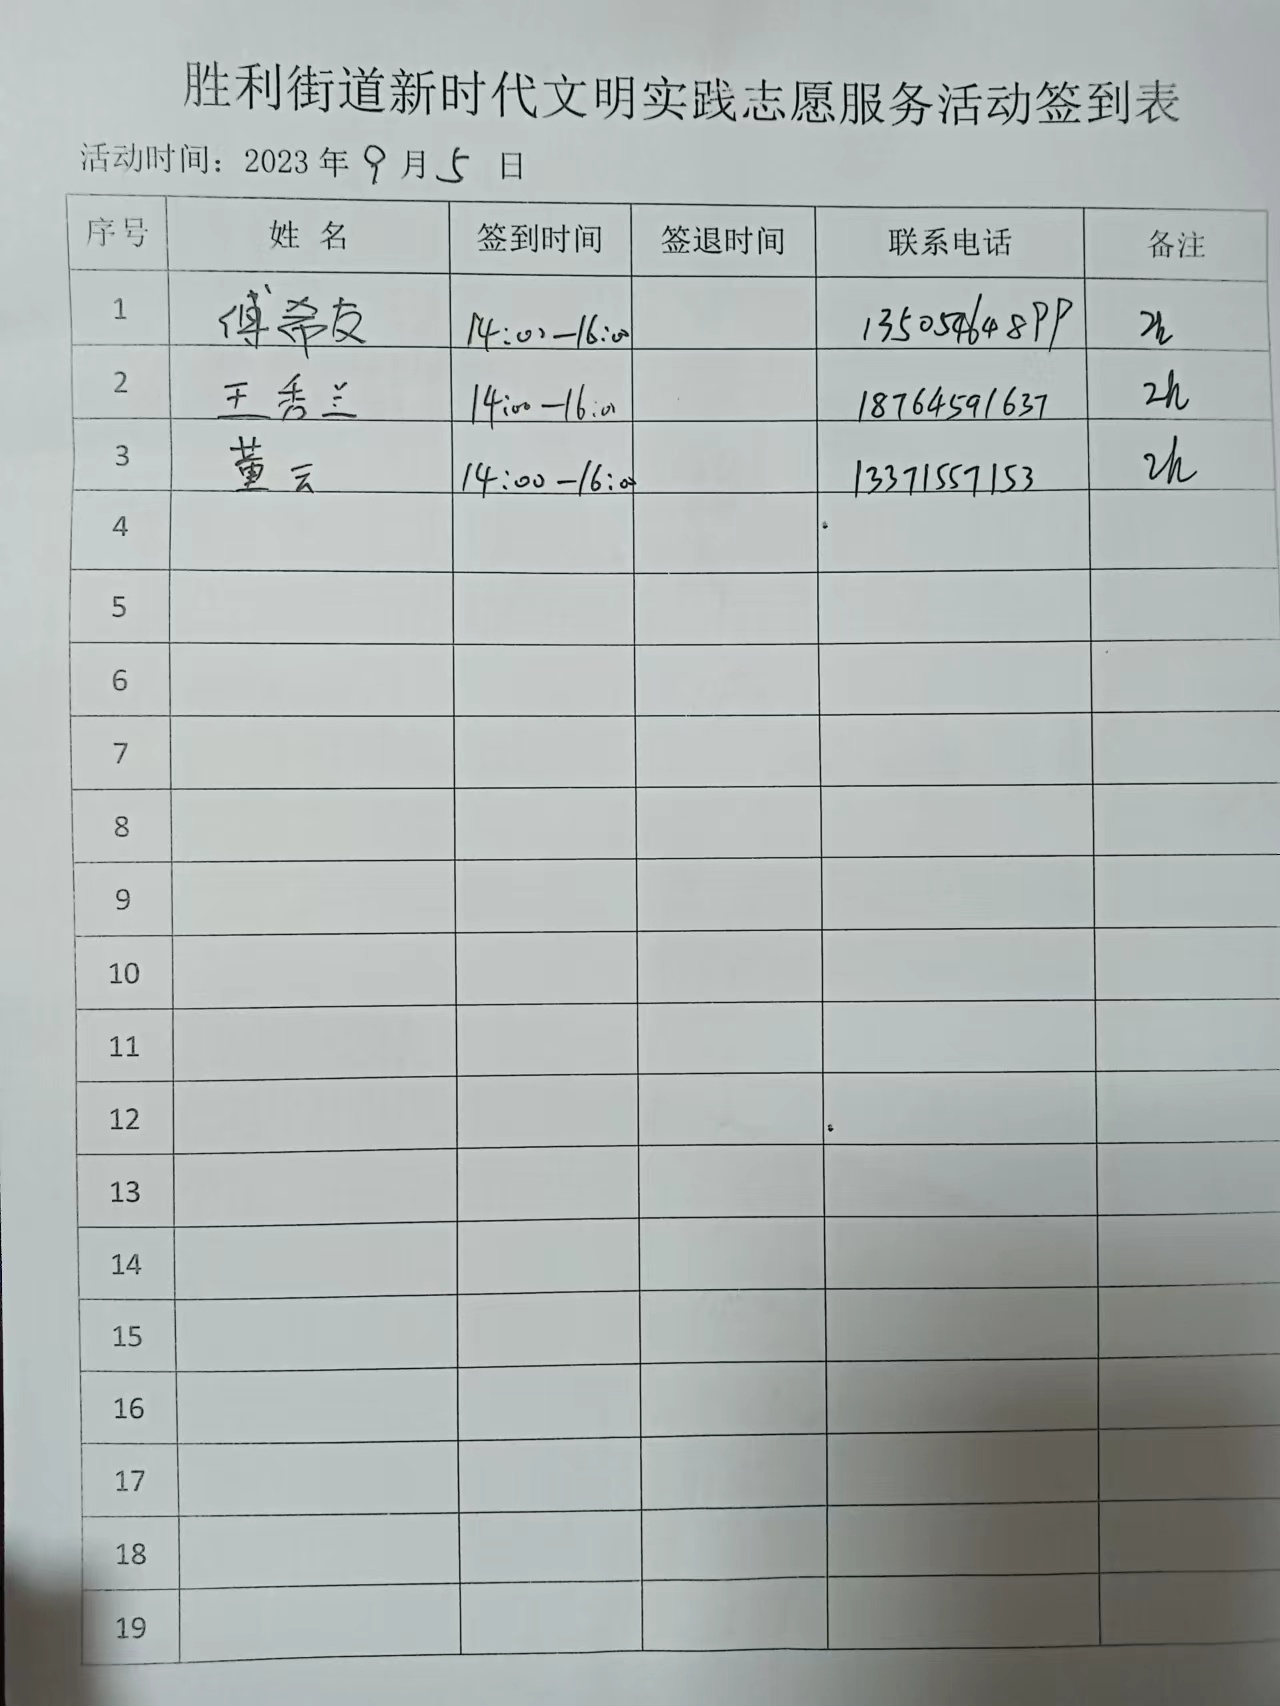 胜利街道新时代文明实践志愿服务活动签到表
活动时间：2023 年 9 月 5 日
序号 姓 名 签到时间 签退时间 联系电话 备注
1 傅希友 14:00-16:00 13505464899 2h
2 王秀兰 14:00-16:00 18764591637 2h
3 董云 14:00-16:00 13371557153 2h
4
5
6
7
8
9
10
11
12
13
14
15
16
17
18
19